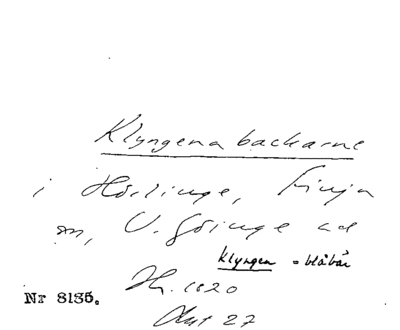 Klyngena backarne
i Hörlinge, Finja
sn, V. Göinge hd
Klyngen = blåbär
Nr 8135.